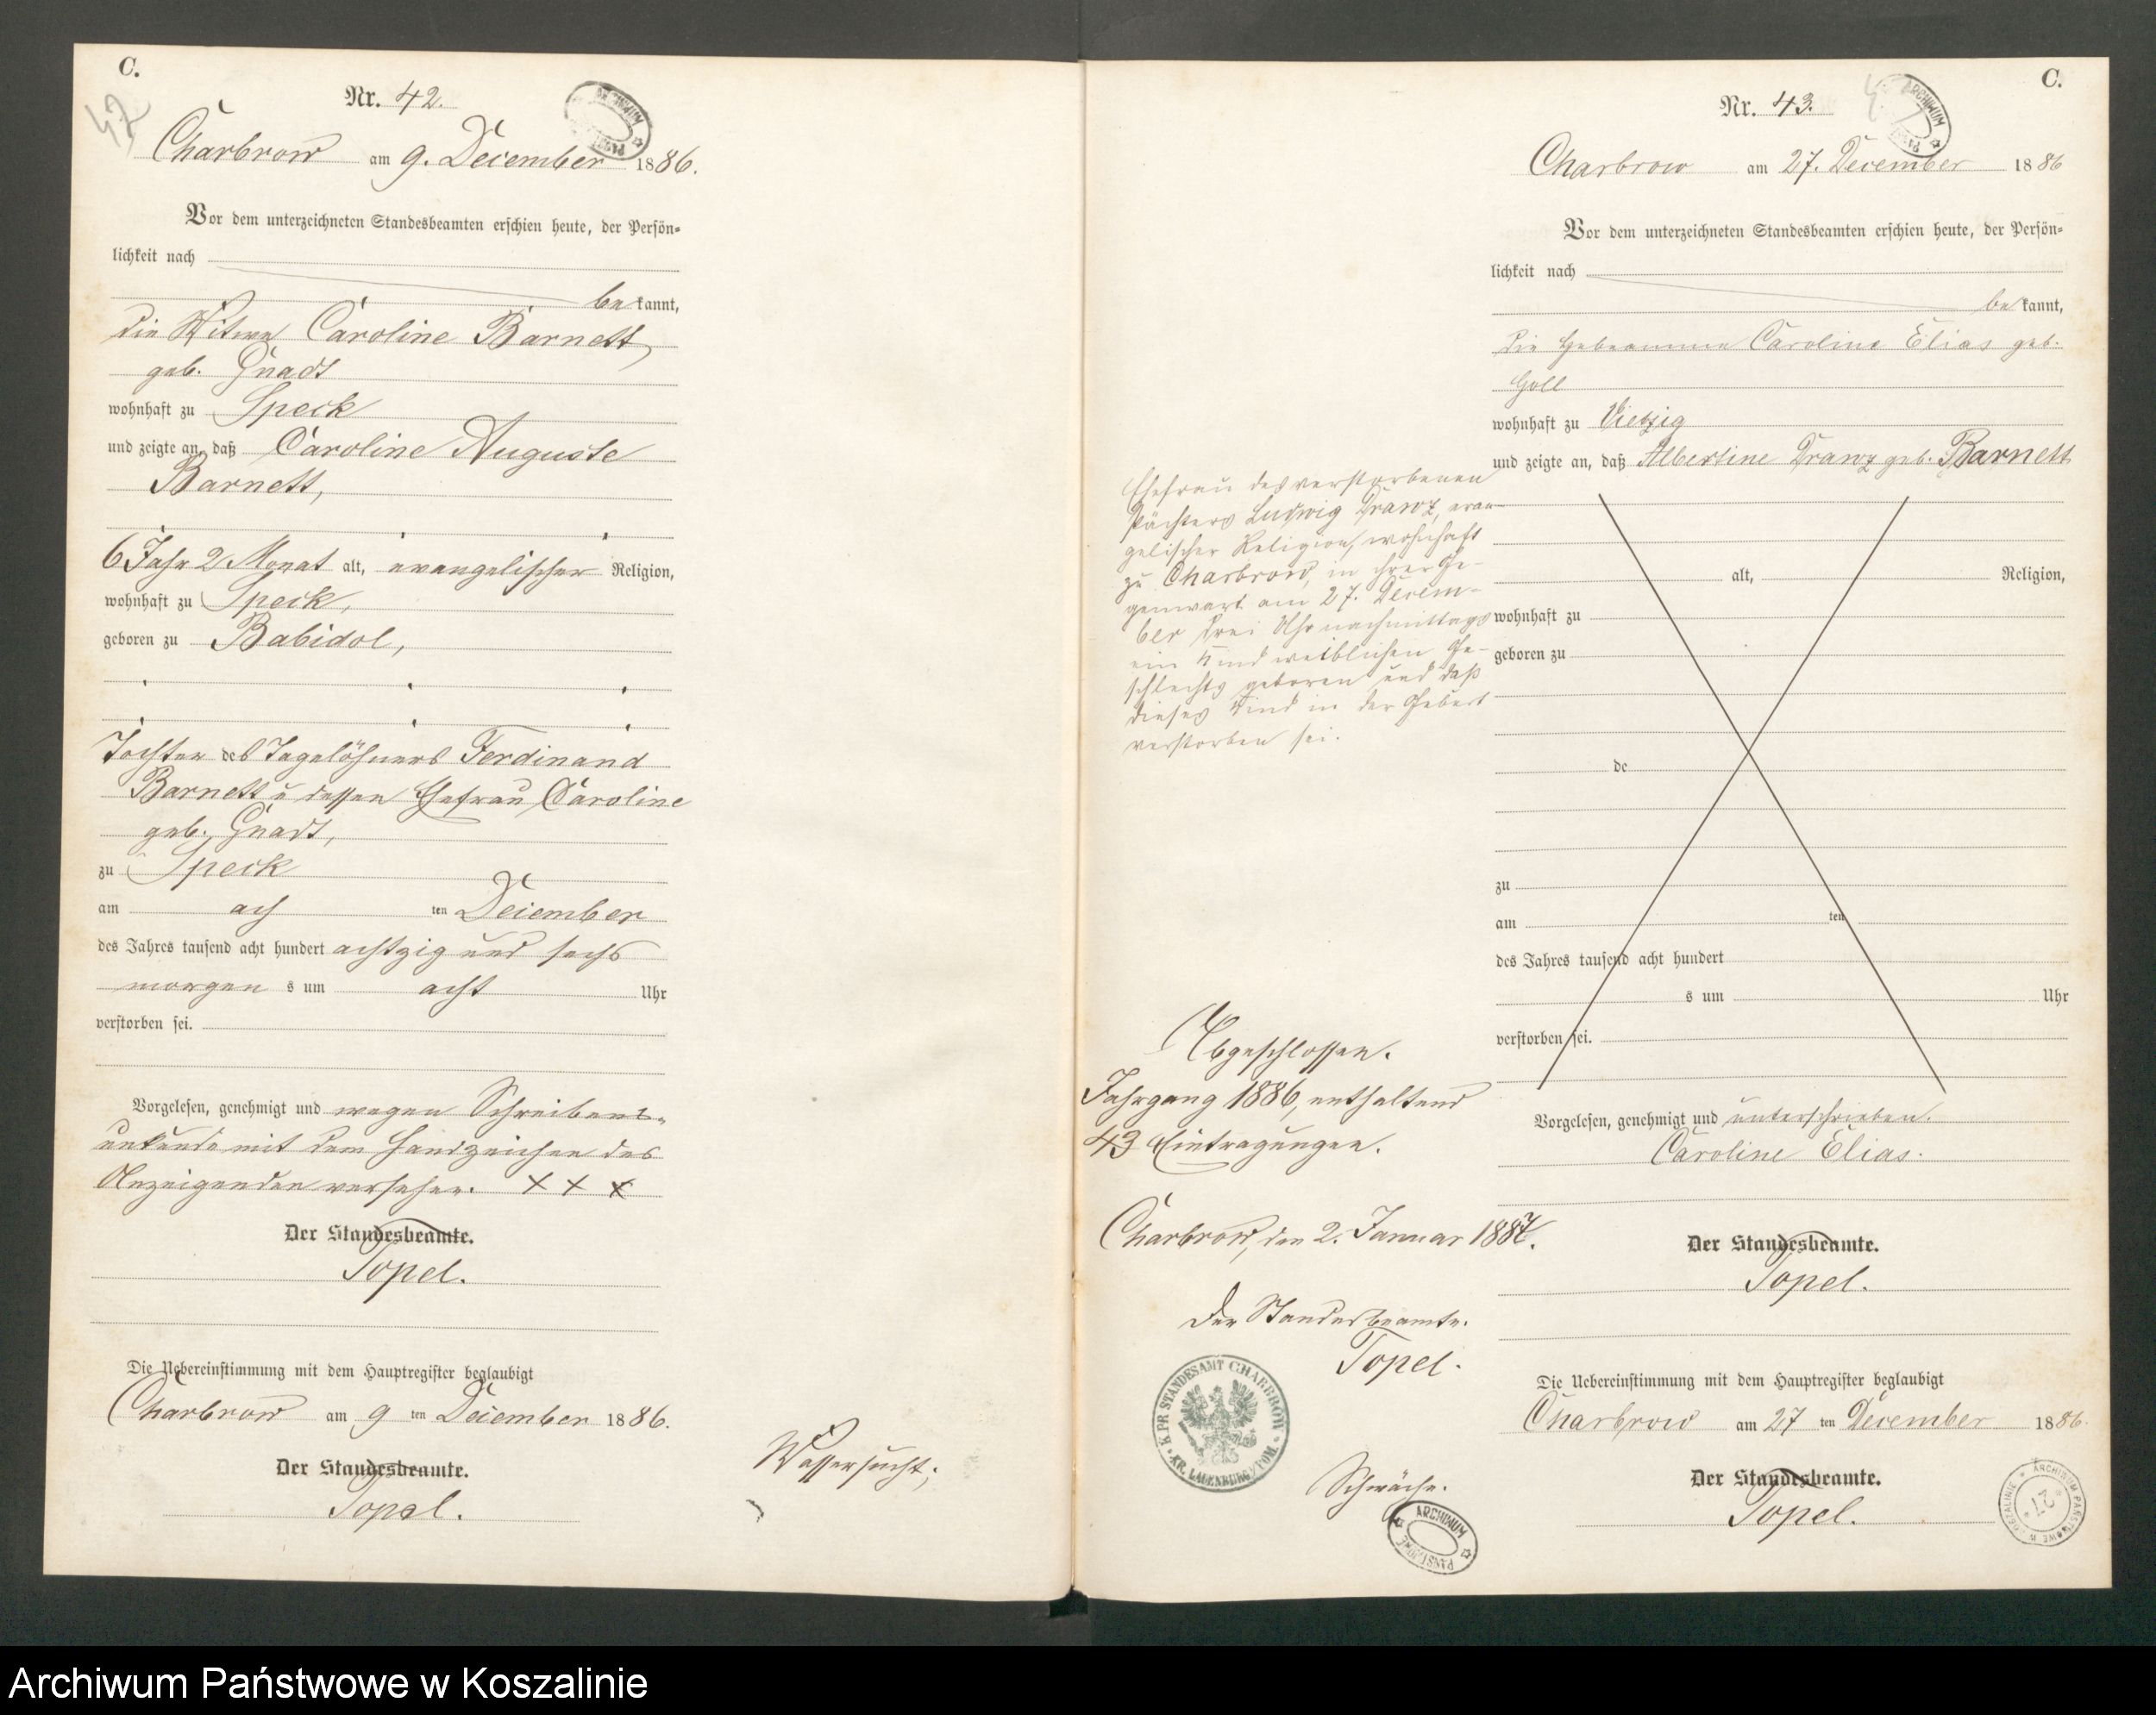 C.
42
Nr. 42.
Charbrow am 9. December 1886.
Vor dem unterzeichneten Standesbeamten erschien heute, der Persön-
lichkeit nach
bekannt,
die Witwe Caroline Barnett,
geb. Gnadt
wohnhaft zu Speck
und zeigte an, daß Caroline Auguste
Barnett,
6 Jahr 2 Monat alt, evangelischer Religion,
wohnhaft zu Speck,
geboren zu Babidol,
Tochter des Tagelöhners Ferdinand
Barnett u dessen Ehefrau Caroline
geb. Gnadt,
zu Speck
am ach ten December
des Jahres tausend acht hundert achtzig und sechs
morgen s um acht Uhr
verstorben sei.
Vorgelesen, genehmigt und wegen Schreibens-
unkunde mit dem Handzeichen des
Anzeigenden versehen. X X X
Der Standesbeamte.
Topel.
Die Uebereinstimmung mit dem Hauptregister beglaubigt
Charbrow am 9 ten December 1886.
Der Standesbeamte.
Topel.
Wassersucht;
C.
Nr. 43.
Charbrow am 27. December 1886
Vor dem unterzeichneten Standesbeamten erschien heute, der Persön-
lichkeit nach
bekannt,
die Hebeamme Caroline Elias geb.
Goll
wohnhaft zu Vietzig
und zeigte an, daß Albertine Drawz geb. Barnett
Ehefrau des verstorbenen
Pächters Ludwig Drawz, evan-
gelischer Religion, wohnhaft
zu Charbrow, in ihrer Ge-
genwart am 27. Decem-
ber drei Uhr nachmittags
ein Kind weiblichen Ge-
schlechts geboren und daß
dieses Kind in der Geburt
verstorben sei.
alt, Religion,
wohnhaft zu
geboren zu
de
zu
am ten
des Jahres tausend acht hundert
s um Uhr
verstorben sei.
Abgeschlossen.
Jahrgang 1886, enthaltend
43 Eintragungen.
Charbrow, den 2. Januar 1887.
Der Standesbeamte.
Topel.
K. PR. STANDESAMT CHARBROW
KR. LAUENBURG/POM.
Schwäche.
ARCHIWUM PAŃSTWOWE
Vorgelesen, genehmigt und unterschrieben.
Caroline Elias.
Der Standesbeamte.
Topel.
Die Uebereinstimmung mit dem Hauptregister beglaubigt
Charbrow am 27 ten December 1886.
Der Standesbeamte.
Topel.
Archiwum Państwowe w Koszalinie